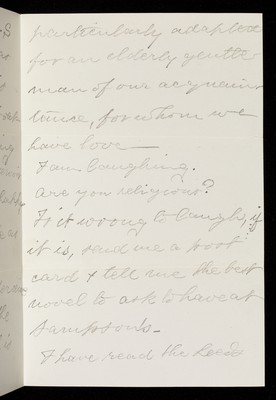 particularly adapted
for an elderly gentle
man of our acquain
tance, for whom we
have love —
I am laughing.
are you religious?
Is it wrong to laugh, if
it is, send me a post
card & tell me the best
novel to ask to have at
Sampson's —
I have read the